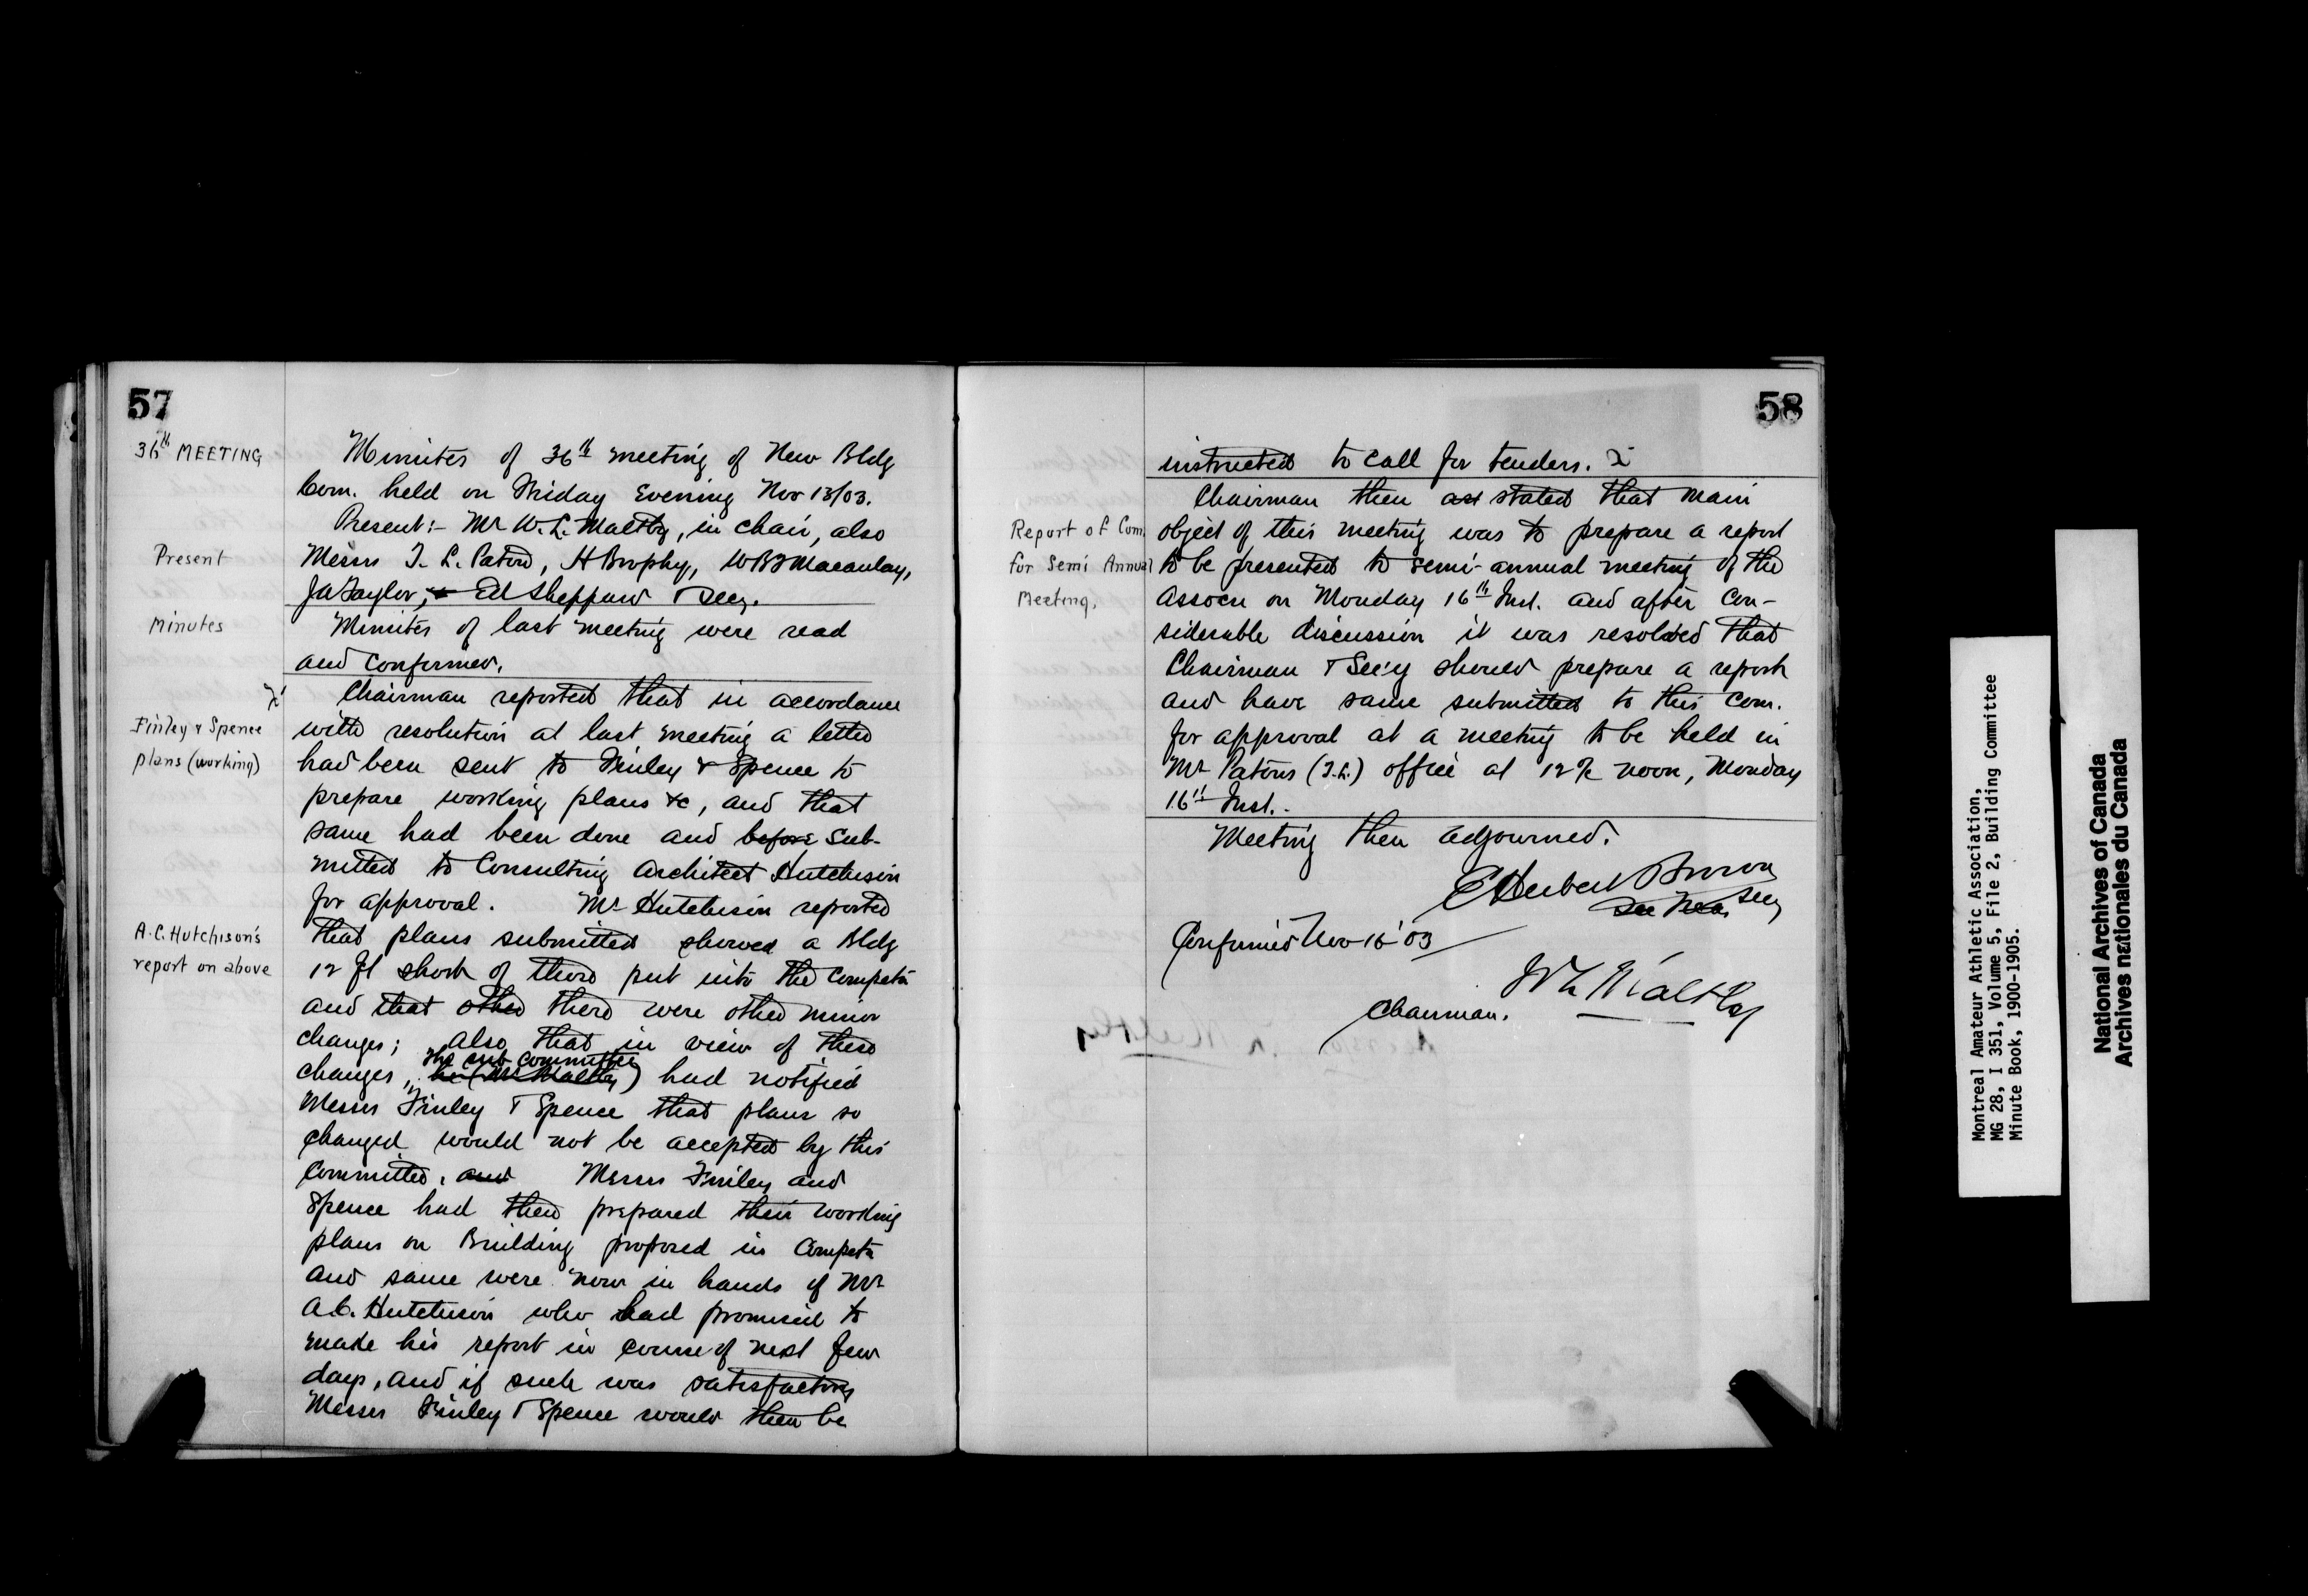 57
36th MEETING
Minutes of 36th meeting of New Bldg
Com. held on Friday Evening Nov 13/03.
Present:- Mr W. L. Maltby, in chair, also
Present
Messrs T. L. Paton, H Brophy, WBT Macaulay,
JA Taylor, & Ed Sheppard & Secy.
Minutes
Minutes of last meeting were read
and confirmed.
Chairman reported that in accordance
Finley & Spence
with resolution at last meeting a letter
plans (working)
had been sent to Finley & Spence to
prepare working plans &c, and that
same had been done and before sub-
mitted to Consulting Architect Hutchison
for approval. Mr Hutchison reported
A.C. Hutchison's
that plans submitted showed a Bldg
report on above
12 ft short of those put into the Competn
and that other there were other minor
changes; also that in view of these
the sub committee
changes, he (Mr Maltby) had notified
Messrs Finley & Spence that plans so
changed would not be accepted by this
Committee, and Messrs Finley and
Spence had then prepared their working
plans on Building proposed in Competn
and same were now in hands of Mr
A.C. Hutchison who had promised to
make his report in course of next few
days, and if such was satisfactory
Messrs Finley & Spence would then be
58
instructed to call for tenders.
Chairman then stated that main
Report of Com.
object of this meeting was to prepare a report
for Semi Annual
to be presented to semi-annual meeting of the
Meeting.
Assocn on Monday 16th Inst. and after con-
siderable discussion it was resolved that
Chairman & Sec'y should prepare a report
and have same submitted to this Com.
for approval at a meeting to be held in
Mr Paton's (T.L.) office at 12 noon, Monday
16th Inst.
Meeting then adjourned.
E Herbert Brown
Secy
Confirmed Nov 16 '03
W L Maltby
Chairman.
Montreal Amateur Athletic Association,
MG 28, I 351, Volume 5, File 2, Building Committee
Minute Book, 1900-1905.
National Archives of Canada
Archives nationales du Canada